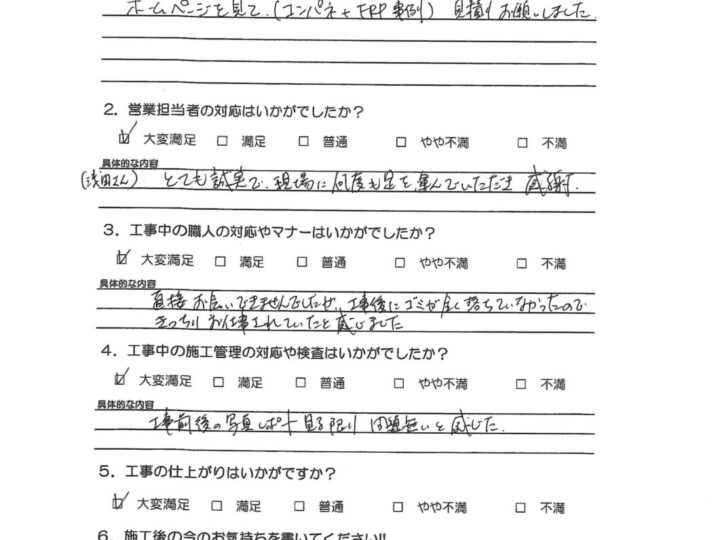 ホームページを見て、(コンパネ+FRP事例) 見積りお願いしました.
2．営業担当者の対応はいかがでしたか？
☑ 大変満足 □ 満足 □ 普通 □ やや不満 □ 不満
具体的な内容
(浅田さん) とても誠実で、現場に何度も足を運んでいただき 感謝.
3．工事中の職人の対応やマナーはいかがでしたか？
☑ 大変満足 □ 満足 □ 普通 □ やや不満 □ 不満
具体的な内容
直接お会いできませんでしたが、工事後にゴミが全く落ちていなかったので
きっちりお仕事されていたと感じました
4．工事中の施工管理の対応や検査はいかがでしたか？
☑ 大変満足 □ 満足 □ 普通 □ やや不満 □ 不満
具体的な内容
工事前後の写真レポート見る限り 問題無いと感じた.
5．工事の仕上がりはいかがですか？
☑ 大変満足 □ 満足 □ 普通 □ やや不満 □ 不満
6．施工後の今のお気持ちを書いてください!!